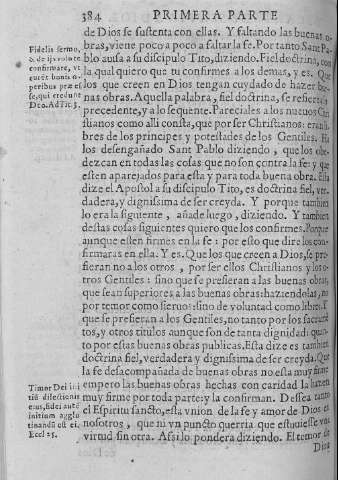 384 PRIMERA PARTE
de Dios se sustenta con ellas. Y faltando las buenas o-
bras, viene poco a poco a faltar la fe. Por tanto Sant Pa-
blo ausa a su discipulo Tito, diziendo. Fiel doctrina, con
la qual quiero que tu confirmes a los demas, y es. Que
los que creen en Dios tengan cuydado de hazer bue-
nas obras. Aquella palabra, fiel doctrina, se refiere a lo
precedente, y a lo sequente. Parecia les a los nueuos Chri
stianos como alli consta, que por ser Christianos: eran li
bres de los principes y potestades de los Gentiles. Ha
los desengañado Sant Pablo diziendo, que los obe-
dezcan en todas las cosas que no son contra la fe: y que
esten aparejados para esta y para toda buena obra. Esta
dize el Apostol a su discipulo Tito, es doctrina fiel, ver-
dadera, y dignissima de ser creyda. Y porque tambien
lo era la siguiente, añade luego, diziendo. Y tambien
destas cosas siguientes quiero que los confirmes. Porque
aunque esten firmes en la fe: por esto que dire los con-
firmaras en ella. Y es. Que los que creen a Dios, se pre
fieran no a los otros, por ser ellos Christianos y los o-
tros Gentiles: sino que se prefieran a las buenas obras,
que sean superiores a las buenas obras: haziendolas, no
por temor como sieruos: sino de voluntad como libres. Y
que se prefieran a los Gentiles, no tanto por los sacramé
tos, y otros titulos aunque son de tanta dignidad: quan-
to por estas buenas obras publicas. Esta dize es tambien
doctrina fiel, verdadera y dignissima de ser creyda. Que
la fe desacompañada de buenas obras no esta muy firme
empero las buenas obras hechas con caridad la hazen
muy firme por toda parte: y la confirman. Dessea tanto
el Espiritu sancto, esta vnion de la fe y amor de Dios en
nosotros, que ni vn puncto querria que estuuiesse vna
virtud sin otra. Assi lo pondera diziendo. El temor de
Dios
Fidelis sermo,
& de ijs volo te
confirmare, vt
curét bonis o-
peribus præes
se, qui credunt
Deo. Ad Tit. 3.
Timor Dei ini
tiū dilectionis
eius, fidei auté
initium agglu
tinandū est ei.
Eccl 25.